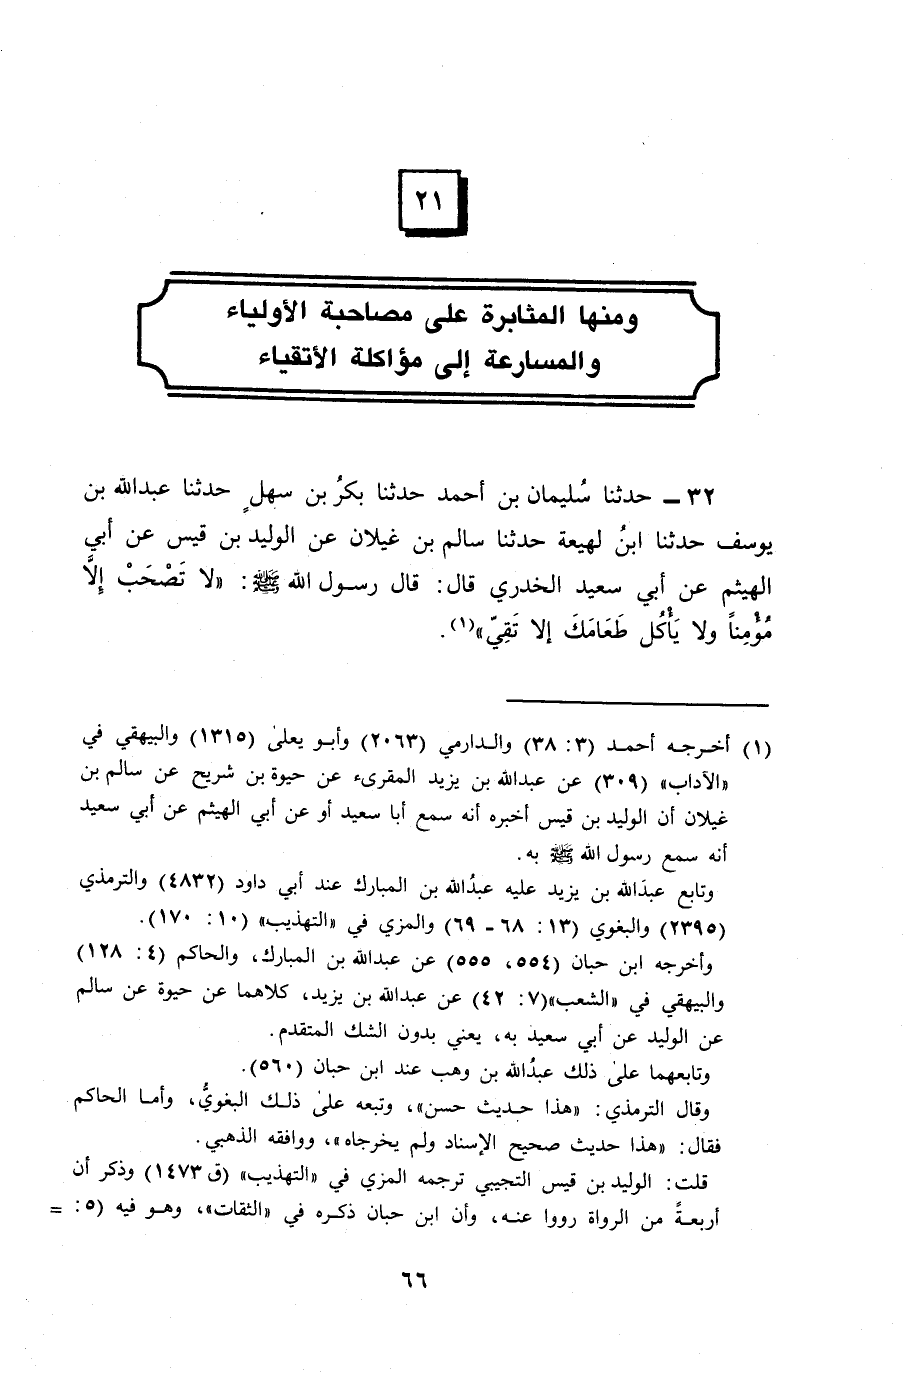 ٢١
ومنها المثابرة على مصاحبة الأولياء
والمسارعة إلى مؤاكلة الأتقياء
٣٢ ــ حدثنا سُليمان بن أحمد حدثنا بكرُ بن سهلٍ حدثنا عبدالله بن
يوسف حدثنا ابنُ لهيعة حدثنا سالم بن غيلان عن الوليد بن قيس عن أبي
الهيثم عن أبي سعيد الخدري قال: قال رسول الله ﷺ: «لا تَصْحَبْ إِلاَّ
مُؤْمِناً ولا يَأْكُل طَعَامَكَ إلا تَقِيّ»(١).
(١) أخرجه أحمد (٣: ٣٨) والدارمي (٢٠٦٣) وأبو يعلىٰ (١٣١٥) والبيهقي في
«الآداب» (٣٠٩) عن عبدالله بن يزيد المقرىء عن حيوة بن شريح عن سالم بن
غيلان أن الوليد بن قيس أخبره أنه سمع أبا سعيد أو عن أبي الهيثم عن أبي سعيد
أنه سمع رسول الله ﷺ به.
وتابع عبدَالله بن يزيد عليه عبدُالله بن المبارك عند أبي داود (٤٨٣٢) والترمذي
(٢٣٩٥) والبغوي (١٣: ٦٨ - ٦٩) والمزي في «التهذيب» (١٠: ١٧٠).
وأخرجه ابن حبان (٥٥٤، ٥٥٥) عن عبدالله بن المبارك، والحاكم (٤: ١٢٨)
والبيهقي في «الشعب»(٧: ٤٢) عن عبدالله بن يزيد، كلاهما عن حيوة عن سالم
عن الوليد عن أبي سعيد به، يعني بدون الشك المتقدم.
وتابعهما علىٰ ذلك عبدُالله بن وهب عند ابن حبان (٥٦٠).
وقال الترمذي: «هذا حديث حسن»، وتبعه علىٰ ذلك البغويُّ، وأما الحاكم
فقال: «هذا حديث صحيح الإسناد ولم يخرجاه»، ووافقه الذهبي.
قلت: الوليد بن قيس التجيبي ترجمه المزي في «التهذيب» (ق ١٤٧٣) وذكر أن
أربعةً من الرواة رووا عنه، وأن ابن حبان ذكره في «الثقات»، وهو فيه (٥: =
٦٦